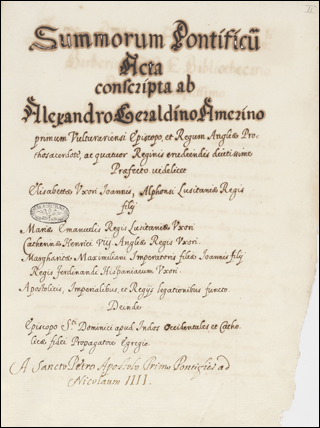 Summorum Pontificũ
Acta
conscripta ab
Alexandro Geraldino Amerino
primum Vulturariensi Episcopo, et Regum Angliæ Pro-
thosacerdote, ac quatuor Reginis erudiendis
Præfecto uidelicet
Elisabettæ Uxori Ioannis, Alphonsi Lusitaniæ Regis
filij
Mariæ Emanuelis Regis Lusitaniæ Uxori
Catherinæ Henrici VIIJ Angliæ Regis Uxori.
Margharitæ Maximiliani Imperatoris filiæ Ioannis filij
Regis ferdinandi Hispaniarum Uxori.
Apostolicis, Imperialibus, et Regijs legationibus functo.
Deinde
Episcopo Sti. Dominici apud Indos Occidentales et Catho-
licæ fidei Propagatore Egregio.
A Sancto Petro Apostolo Primo Pontifice ad
Nicolaum IIII.